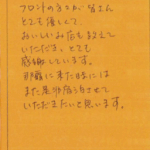 フロントの方々が皆さん
とても優しくて、
おいしいお店も教えて
いただき、とても
感謝しています。
那覇に来た時には
また是非宿泊させて
いただきたいと思います。